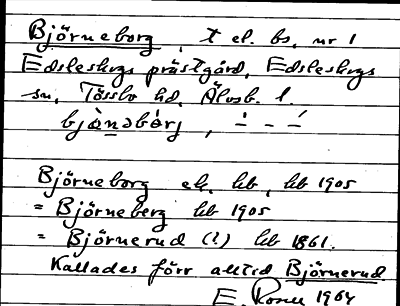 Björneborg, t el. bs, nr 1
Edsleskogs prästgård, Edsleskogs
sn, Tössbo hd, Älvsb. l.
bjö̀ṇəbárj, ∸ – –́
Björneborg ek. kb, kb 1905
= Björneberg kb 1905
= Björnerud (?) kb 1861.
Kallades förr alltid Björnerud
E. 1964